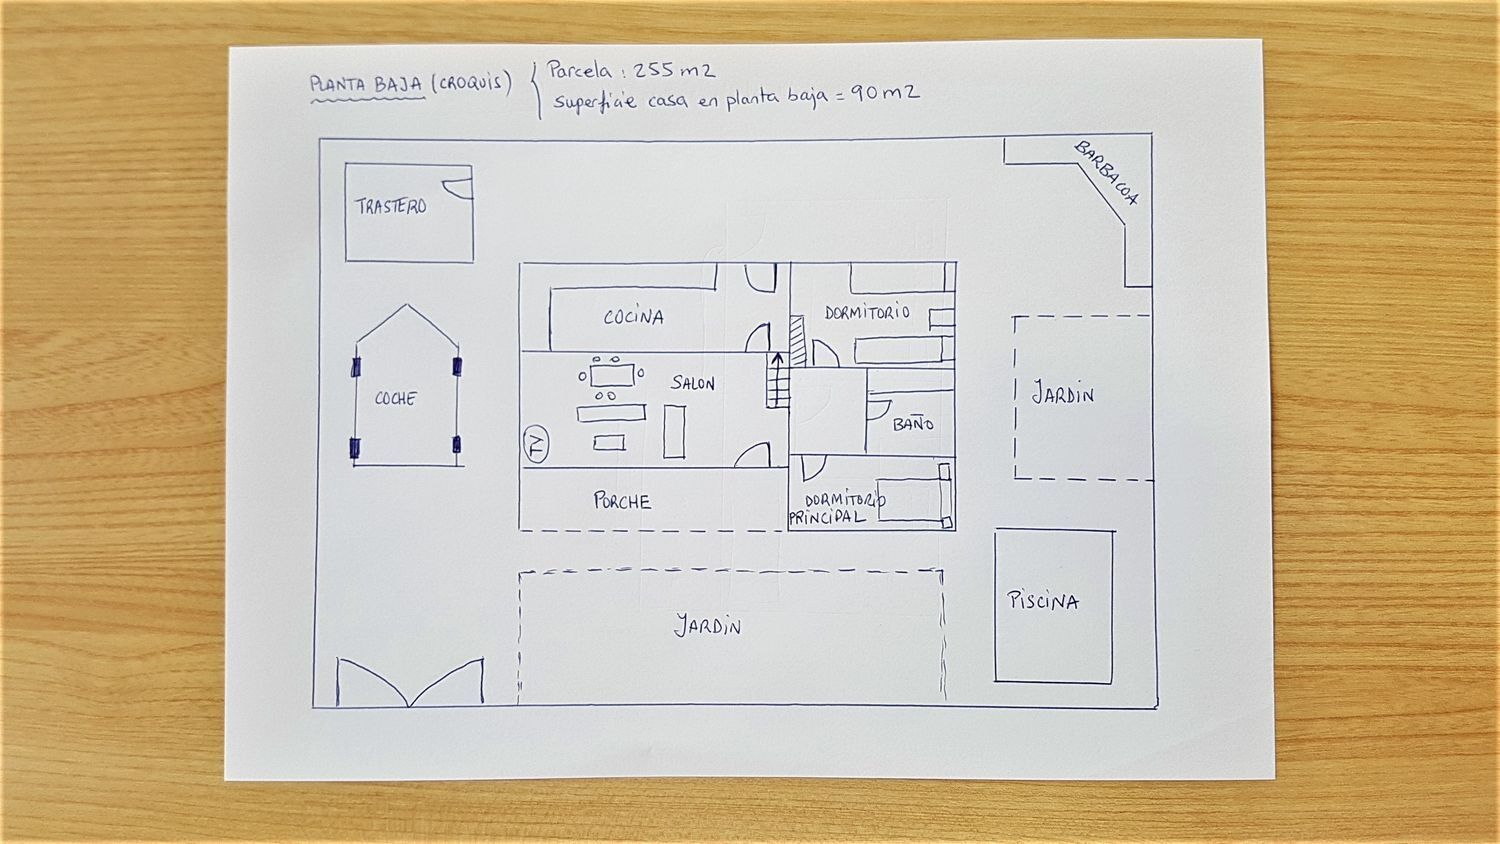 PLANTA BAJA (CROQUIS)
Parcela : 255 m2
superficie casa en planta baja = 90 m2
BARBACOA
TRASTERO
COCINA
DORMITORIO
COCHE
SALON
JARDIN
BAÑO
TV
PORCHE
DORMITORIO
PRINCIPAL
JARDIN
PISCINA